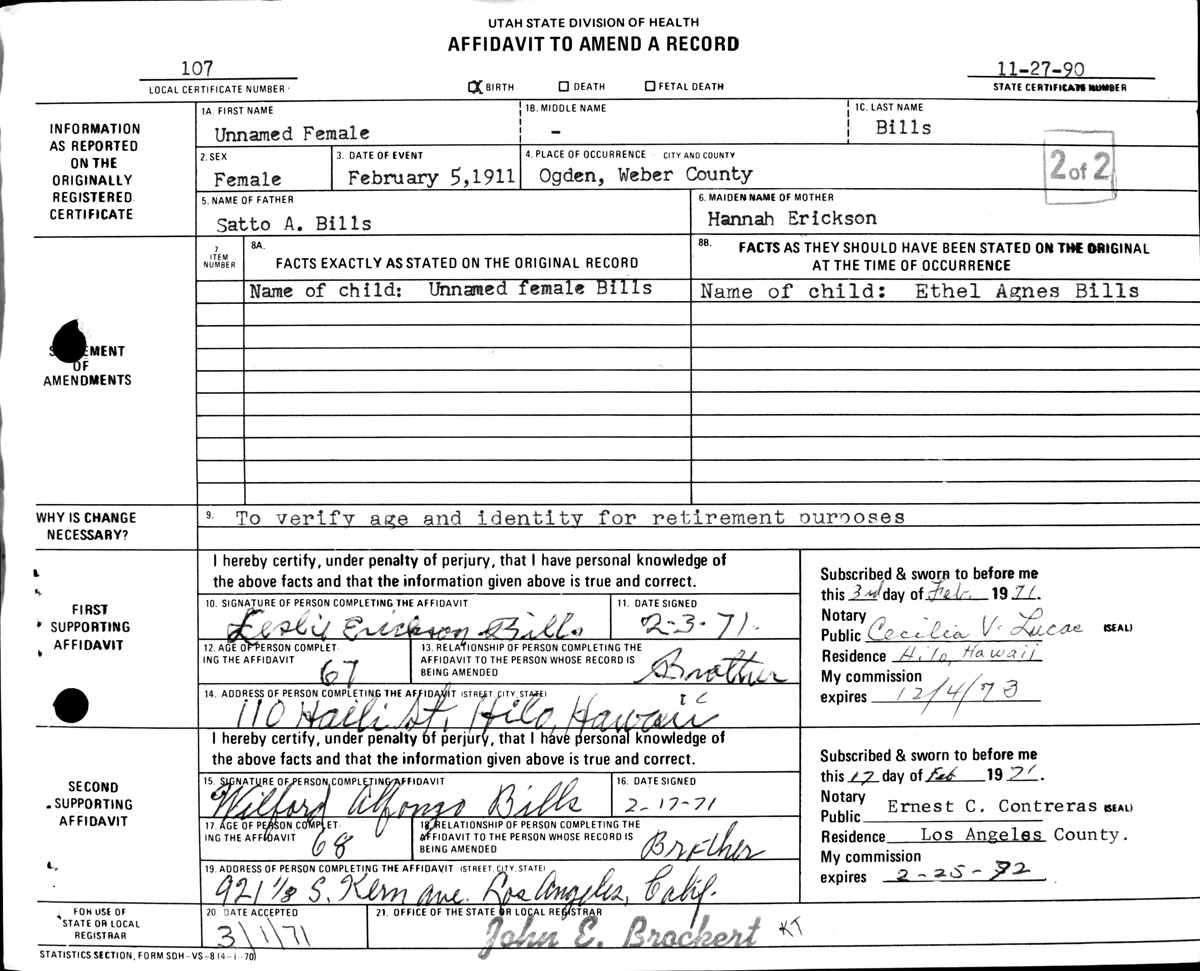 UTAH STATE DIVISION OF HEALTH
AFFIDAVIT TO AMEND A RECORD
107
LOCAL CERTIFICATE NUMBER
X BIRTH DEATH FETAL DEATH
11-27-90
STATE CERTIFICATE NUMBER
INFORMATION
AS REPORTED
ON THE
ORIGINALLY
REGISTERED
CERTIFICATE
1A. FIRST NAME
Unnamed Female
1B. MIDDLE NAME
-
1C. LAST NAME
Bills
2. SEX
Female
3. DATE OF EVENT
February 5,1911
4. PLACE OF OCCURRENCE - CITY AND COUNTY
Ogden, Weber County
2 of 2
5. NAME OF FATHER
Satto A. Bills
6. MAIDEN NAME OF MOTHER
Hannah Erickson
OF
AMENDMENTS
7
ITEM
NUMBER
8A.
FACTS EXACTLY AS STATED ON THE ORIGINAL RECORD
8B. FACTS AS THEY SHOULD HAVE BEEN STATED ON THE ORIGINAL
AT THE TIME OF OCCURRENCE
Name of child: Unnamed female Bills
Name of child: Ethel Agnes Bills
WHY IS CHANGE
NECESSARY?
9. To verify age and identity for retirement purposes
FIRST
SUPPORTING
AFFIDAVIT
I hereby certify, under penalty of perjury, that I have personal knowledge of
the above facts and that the information given above is true and correct.
10. SIGNATURE OF PERSON COMPLETING THE AFFIDAVIT
Leslie Erickson Bills
11. DATE SIGNED
2-3-71.
12. AGE OF PERSON COMPLET-
ING THE AFFIDAVIT
67
13. RELATIONSHIP OF PERSON COMPLETING THE
AFFIDAVIT TO THE PERSON WHOSE RECORD IS
BEING AMENDED
Brother
14. ADDRESS OF PERSON COMPLETING THE AFFIDAVIT (STREET, CITY, STATE)
110 Haili St, Hilo, Hawaii
Subscribed & sworn to before me
this 3rd day of Feb. 1971.
Notary
Public Cecilia V. Lucas (SEAL)
Residence Hilo, Hawaii
My commission
expires 12/4/73
SECOND
SUPPORTING
AFFIDAVIT
I hereby certify, under penalty of perjury, that I have personal knowledge of
the above facts and that the information given above is true and correct.
15. SIGNATURE OF PERSON COMPLETING AFFIDAVIT
Wilford Alfonzo Bills
16. DATE SIGNED
2-17-71
17. AGE OF PERSON COMPLET-
ING THE AFFIDAVIT
68
18. RELATIONSHIP OF PERSON COMPLETING THE
AFFIDAVIT TO THE PERSON WHOSE RECORD IS
BEING AMENDED
Brother
19. ADDRESS OF PERSON COMPLETING THE AFFIDAVIT (STREET, CITY, STATE)
921 1/8 S. Kern ave. Los Angeles, Calif.
Subscribed & sworn to before me
this 17 day of Feb 1971.
Notary
Public Ernest C. Contreras (SEAL)
Residence Los Angeles County.
My commission
expires 2-25-72
FOR USE OF
STATE OR LOCAL
REGISTRAR
20. DATE ACCEPTED
3/1/71
21. OFFICE OF THE STATE OR LOCAL REGISTRAR
John E. Brockert KT
STATISTICS SECTION, FORM SDH-VS-8 (4-1-70)